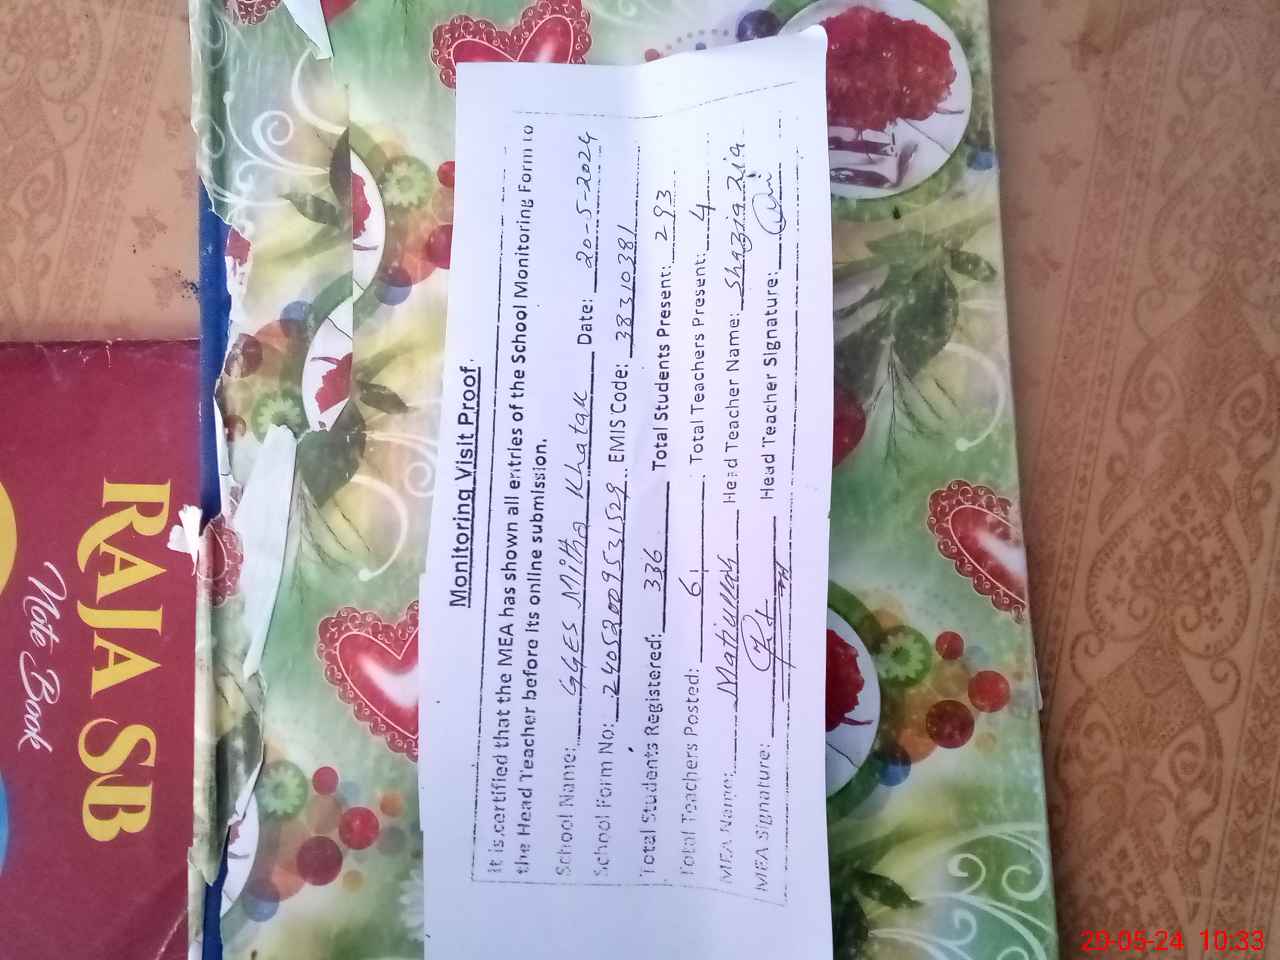 Monitoring Visit Proof
It is certified that the MEA has shown all entries of the School Monitoring Form to
the Head Teacher before its online submission.
School Name: GGES Mitha Khatak Date: 20-5-2024
School Form No: 24052009531529 EMIS Code: 38310381
Total Students Registered: 336 Total Students Present: 293
Total Teachers Posted: 6 Total Teachers Present: 4
MEA Name: Matiullah Head Teacher Name: Shazia Zia
MEA Signature: Head Teacher Signature:
RAJA SB
Note Book
20-05-24 10:33